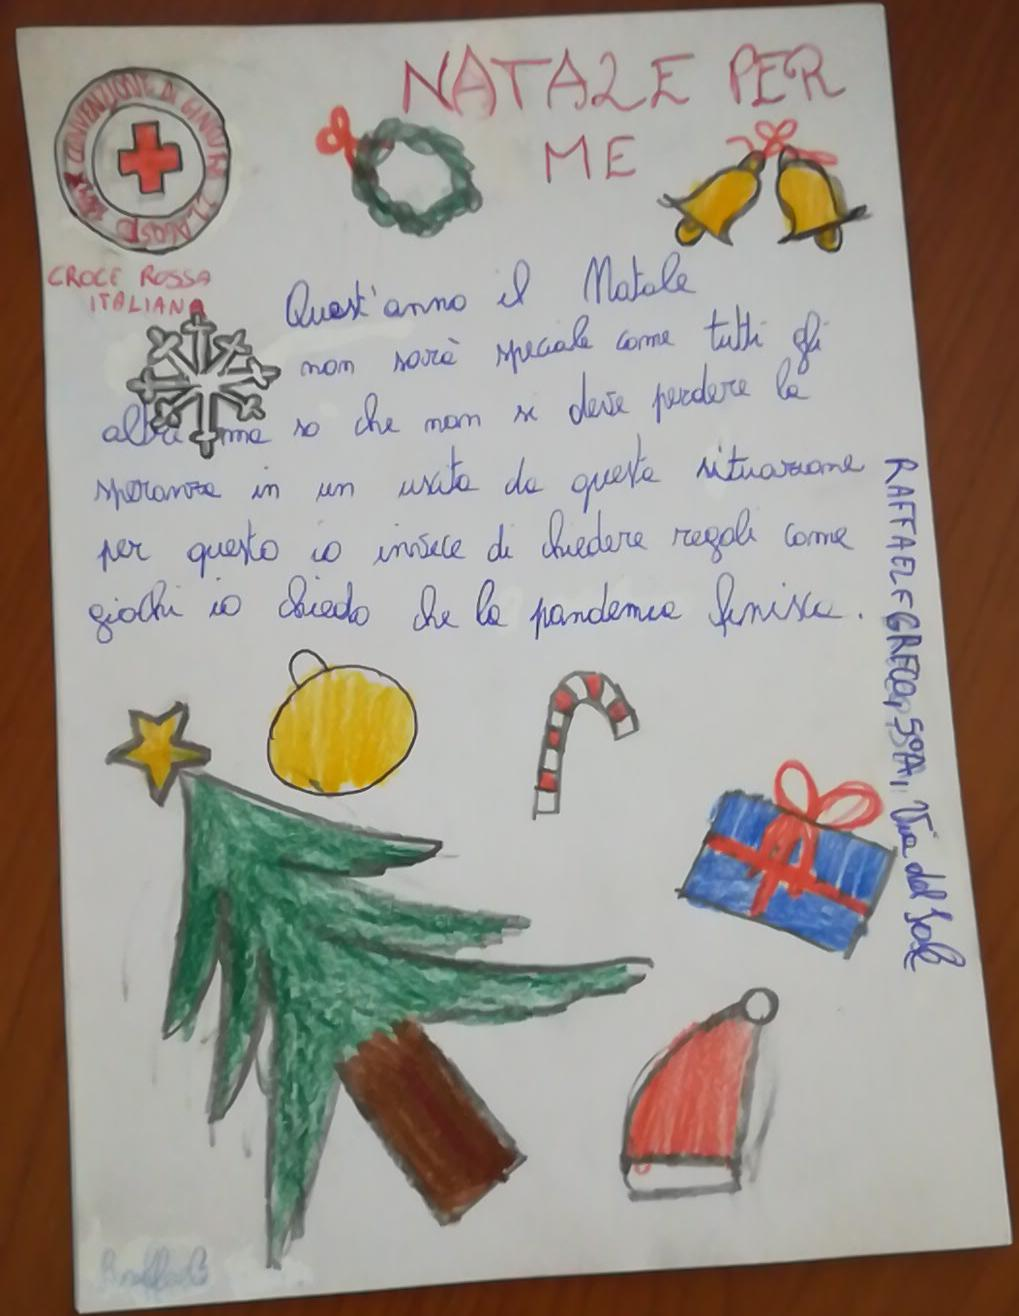 NATALE PER
ME
CONVENZIONE DI GINEVRA 22 AGOSTO
CROCE ROSSA
ITALIANA
Quest'anno il Natale
non sarà speciale come tutti gli
altri ma so che non si deve perdere la
speranza in un uscita da questa situazione
per questo io invece di chiedere regali come
giochi io chiedo che la pandemia finisca.
RAFFAELE GRECO, 5ºA, Via del Sole